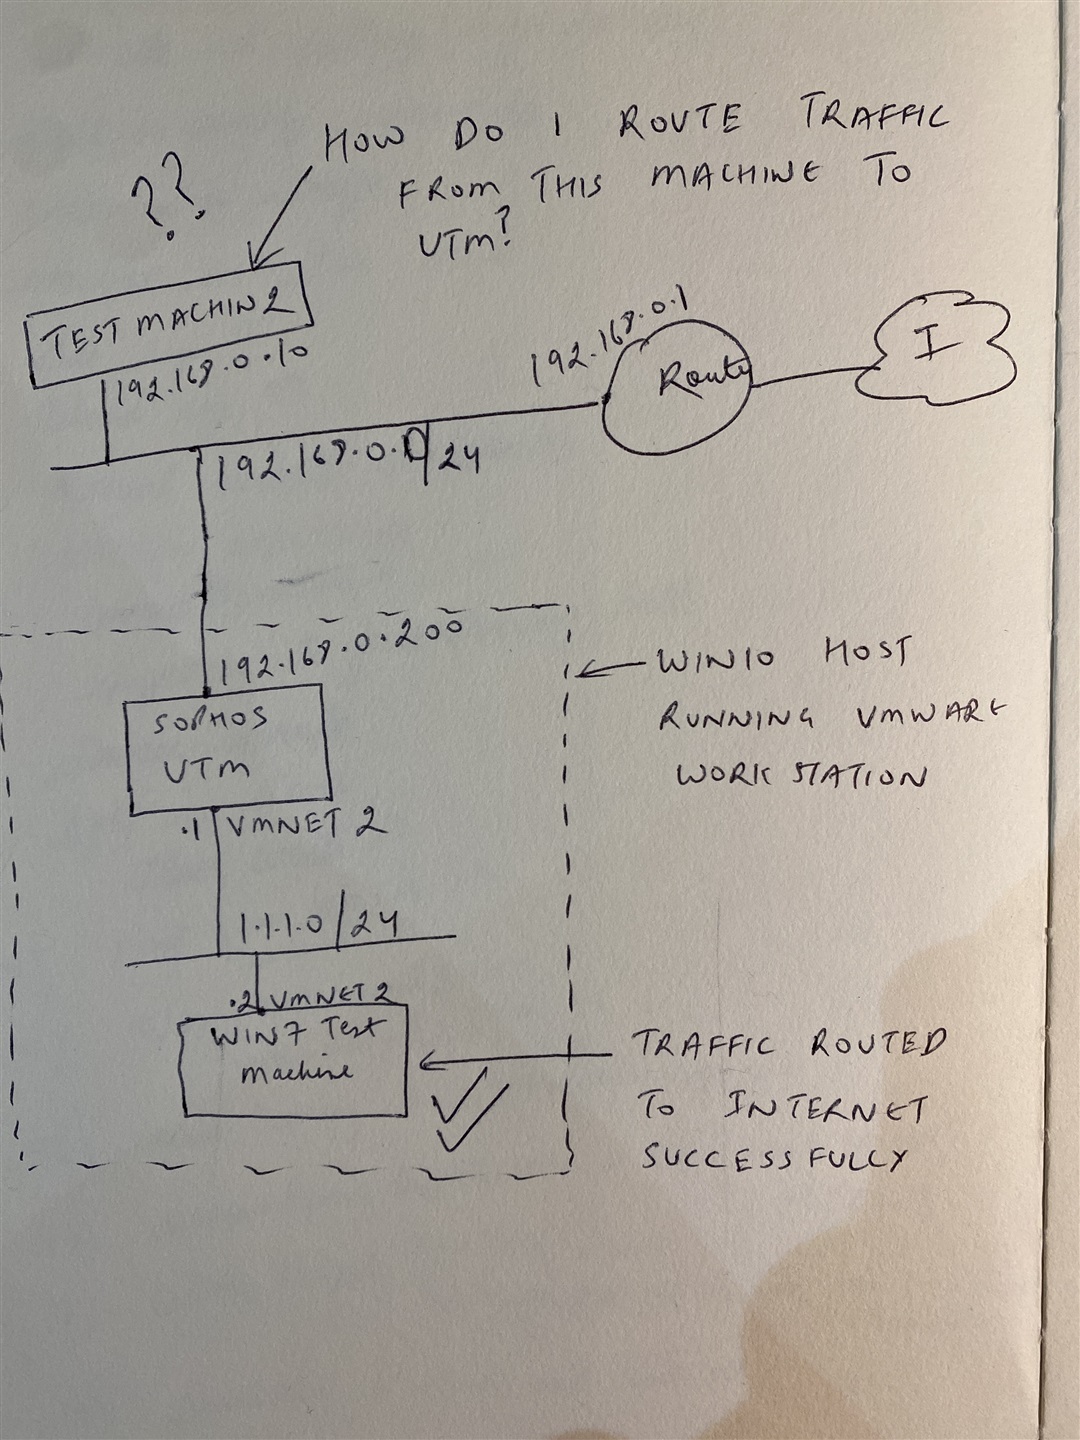 HOW DO I ROUTE TRAFFIC
FROM THIS MACHINE TO
UTM?
??
TEST MACHIN 2
192.168.0.10
192.168.0.1
Route
I
192.168.0.0/24
192.168.0.200
WIN10 HOST
RUNNING VMWARE
WORKSTATION
SOPHOS
UTM
.1 VMNET 2
1.1.1.0/24
.2 VMNET 2
WIN7 Test
Machine
TRAFFIC ROUTED
TO INTERNET
SUCCESSFULLY